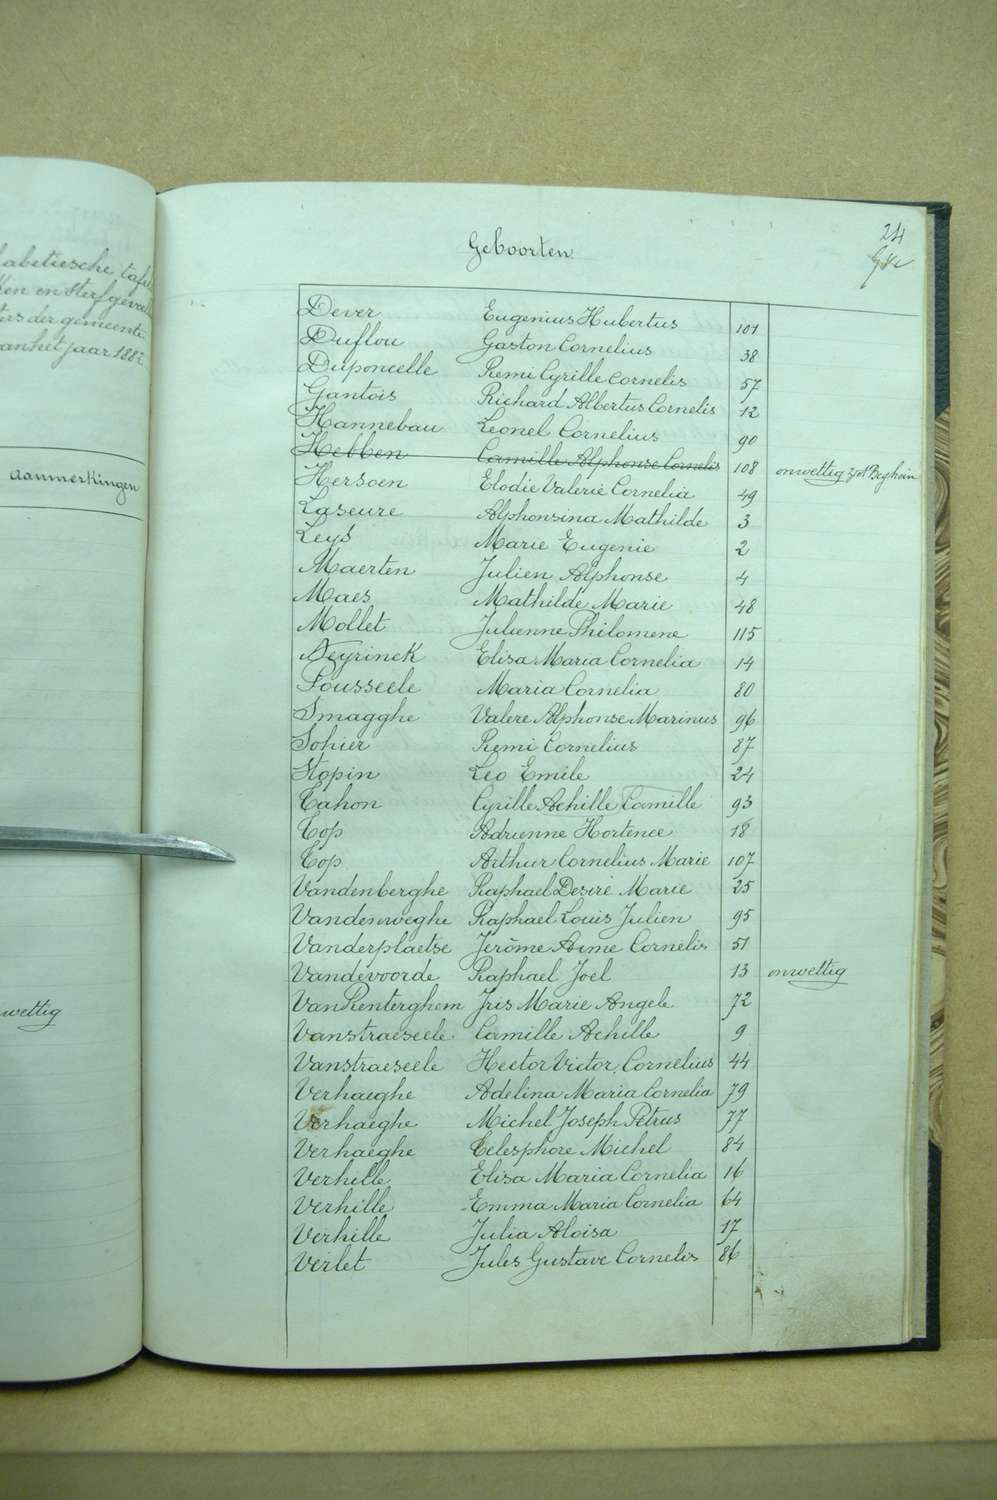 abetiesche tafel
ken en Sterfgevalle
ters der gemeente
van het jaar 1882
aanmerkingen
wettig
24
Geboorten
Dever Eugenius Hubertus 101
Duflou Gaston Cornelius 38
Duponcelle Remi Cyrille Cornelis 57
Gantois Richard Albertus Cornelis 12
Hannebau Leonel Cornelius 90
Hebben Camille Alphonse Cornelis 108 onwettig zot Beghein
Hersoen Elodie Valerie Cornelia 49
Laseure Alphonsina Mathilde 3
Leys Marie Eugenie 2
Maerten Julien Alphonse 4
Maes Mathilde Marie 48
Mollet Julienne Philomene 115
Neyrinck Elisa Maria Cornelia 14
Pousseele Maria Cornelia 80
Smagghe Valere Alphonse Marinus 96
Sohier Remi Cornelius 87
Stopin Leo Emile 24
Tahon Cyrille Achille Camille 93
Top Adrienne Hortence 18
Top Arthur Cornelius Marie 107
Vandenberghe Raphael Desiré Marie 25
Vandenweghe Raphael Louis Julien 95
Vanderplaetse Jerôme Aime Cornelis 51
Vandevoorde Raphael Joel 13 onwettig
Van Renterghem Iris Marie Angele 72
Vanstraeseele Camille Achille 9
Vanstraeseele Hector Victor Cornelius 44
Verhaeghe Adelina Maria Cornelia 79
Verhaeghe Michel Joseph Petrus 77
Verhaeghe Telesphore Michel 84
Verhille Elisa Maria Cornelia 16
Verhille Emma Maria Cornelia 64
Verhille Julia Aloisa 17
Verlet Jules Gustave Cornelis 86